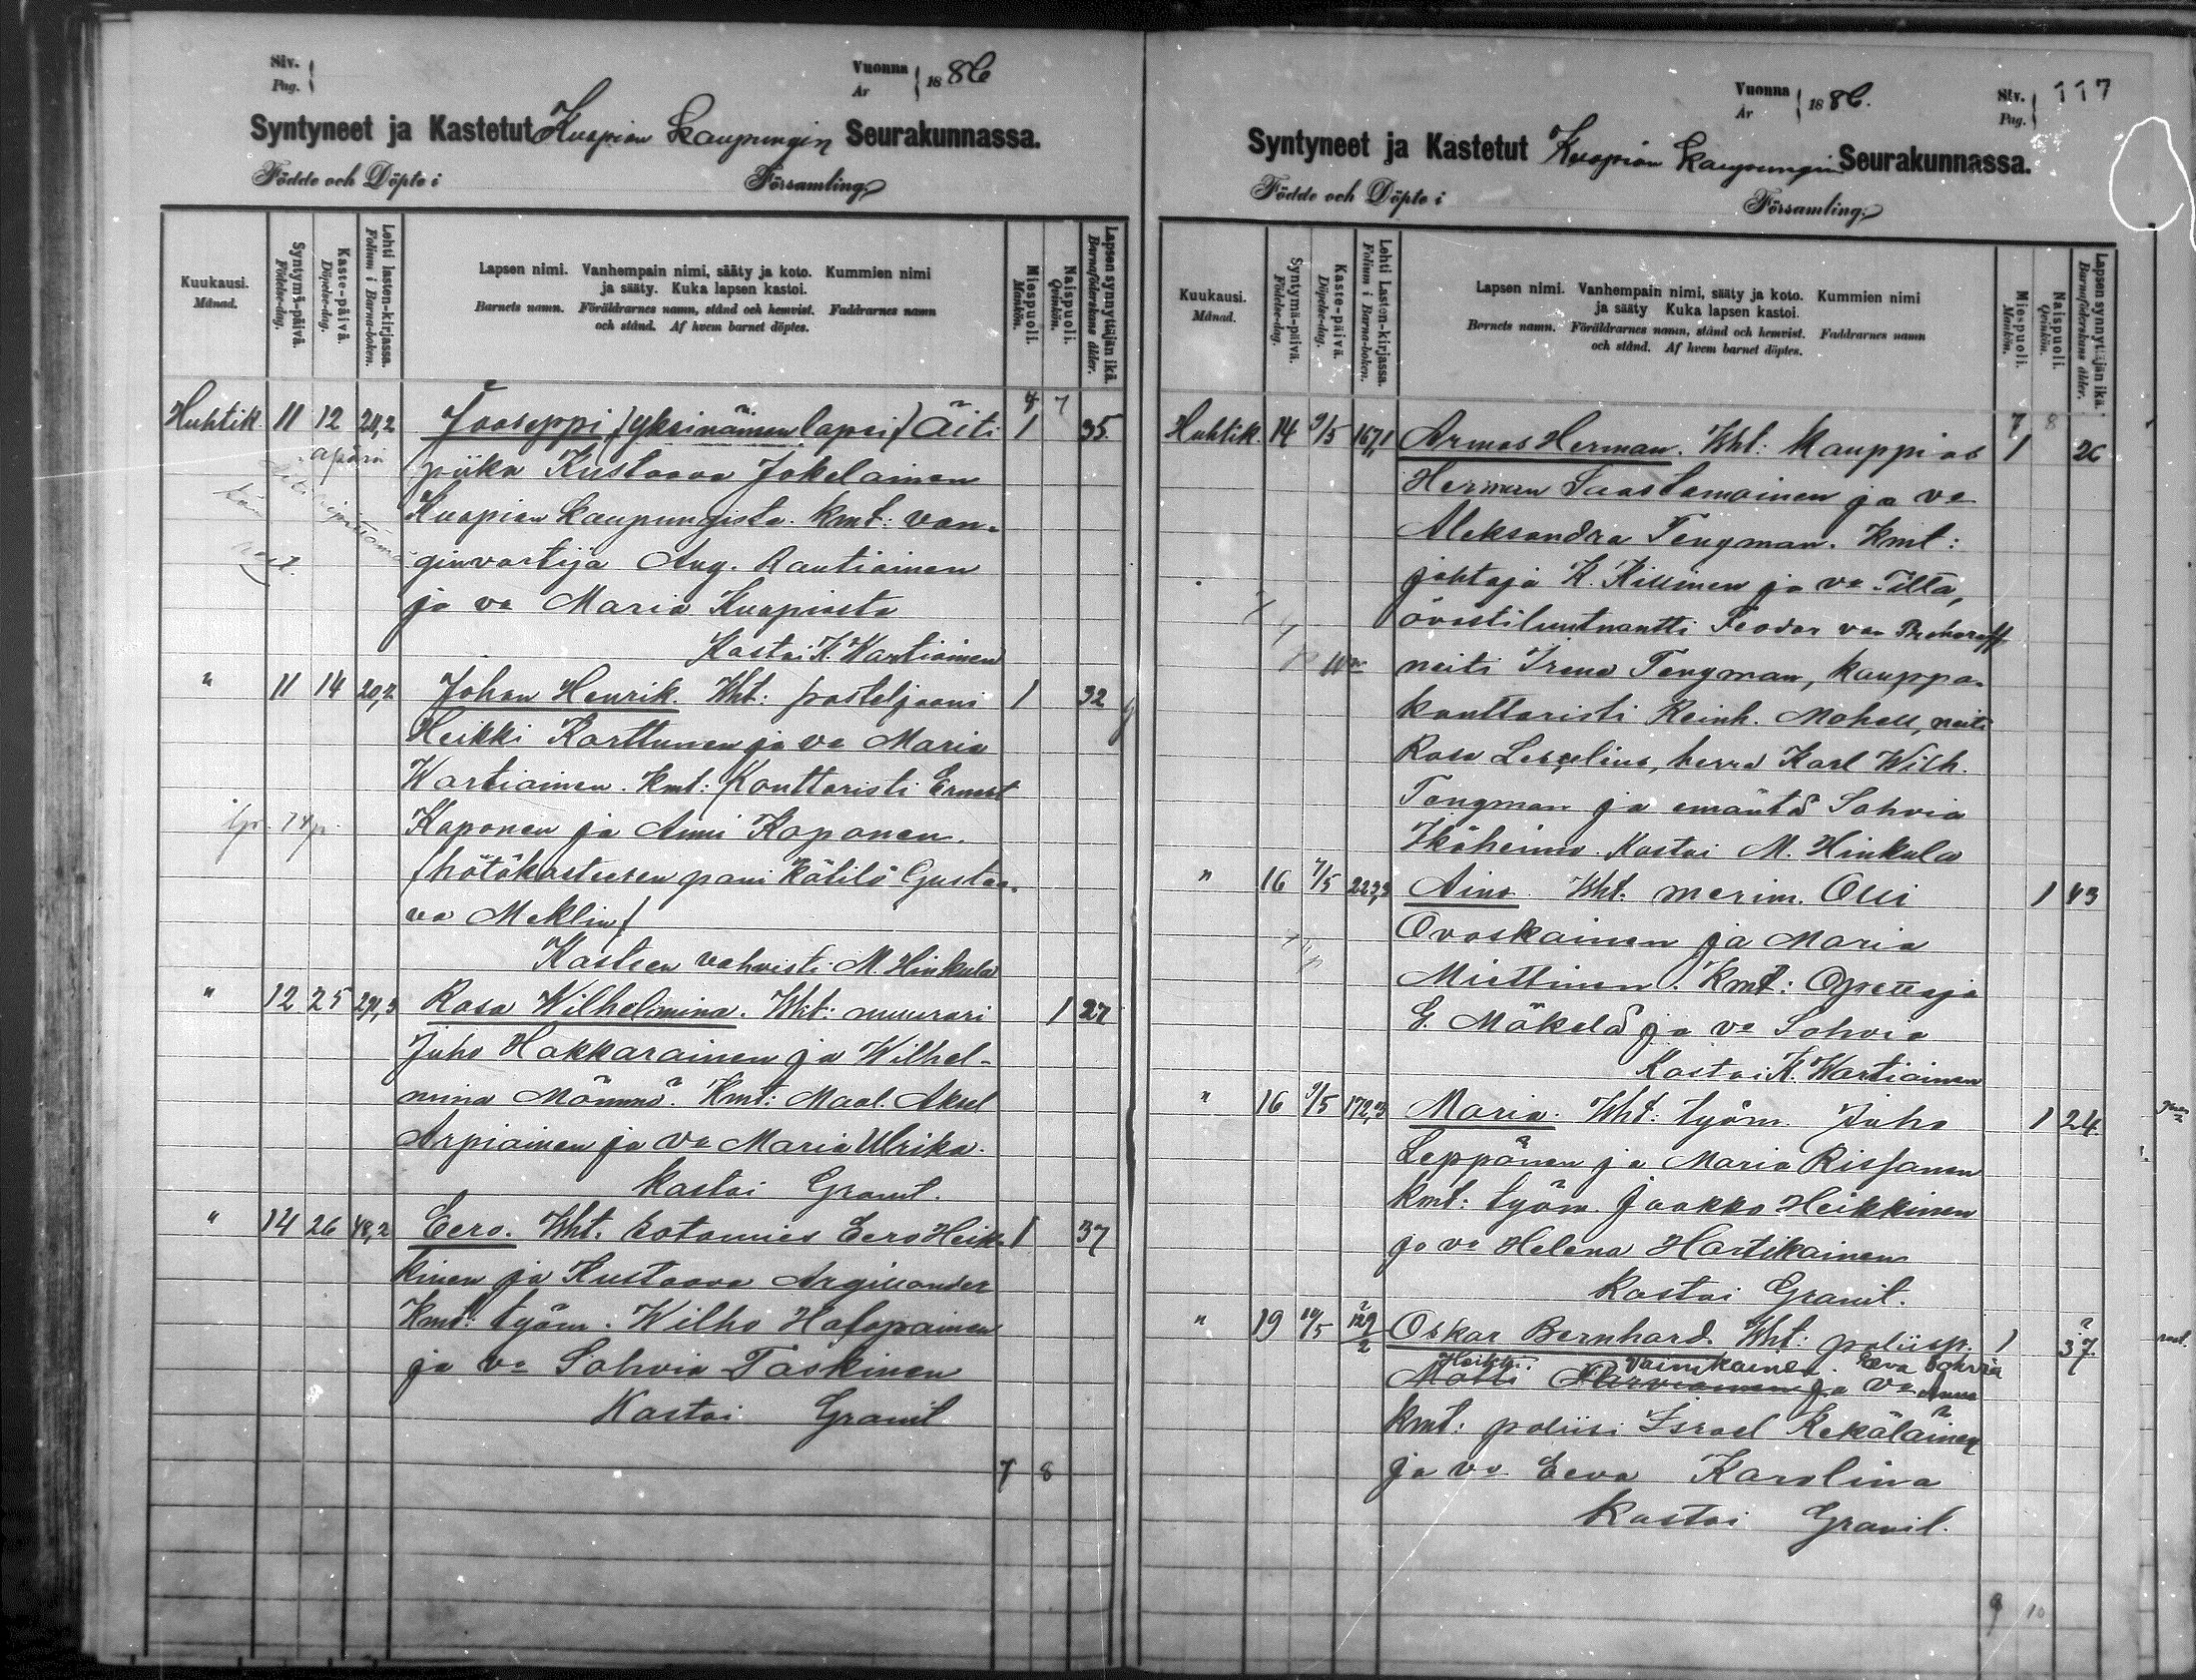 Siv.
Pag.
Vuonna
År
1886
Syntyneet ja Kastetut Kuopion kaupungin Seurakunnassa.
Födde och Döpte i Församling.
Kuukausi.
Månad.
Syntymä-päivä.
Födelse-dag.
Kaste-päivä.
Döpelse-dag.
Lehti lasten-kirjassa.
Folium i Barna-boken.
Lapsen nimi. Vanhempain nimi, sääty ja koto. Kummien nimi
ja sääty. Kuka lapsen kastoi.
Barnets namn. Föräldrarnes namn, stånd och hemvist. Faddrarnes namn
och stånd. Af hvem barnet döptes.
Miespuoli.
Mankön.
Naispuoli.
Qvinkön.
Lapsen synnyttäjän ikä.
Barnaföderskans ålder.
Huhtik. 11 12 Jooseppi (yksinäinen lapsi) Äiti 1 35
apärä
piika Kustaava Jokelainen
Kuopion kaupungista. Kmt: van-
ginvartija Aug. Rautiainen
ja vo Maria Kuopiosta
Kastoi K. Wartiainen
" 11 14 20,2 Johan Henrik. Wht: posteljooni 1 32
Heikki Karttunen ja vo Maria
Wartiainen. Kmt: Konttoristi Ernest
Koponen ja Anni Koponen.
(hätäkasteesen pani kätilö Gustaa-
va Meklin)
Kasteen vahvisti M. Hinkula
" 12 25 291,3 Rosa Wilhelmina. Wht: muurari 1 27
Juho Hakkarainen ja Wilhel-
mina Mömmö. Kmt: Maal. Aksel
Arpiainen ja vo Maria Ulrika.
Kastoi Granit.
" 14 26 48,2 Eero. Wht. sotamies Eero Heik- 1 37
kinen ja Kustaava Argillander
Kmt: työm. Wilho Halopainen
ja vo Sohvia Taskinen
Kastoi Granit
7 8
Vuonna
År
1886.
Siv.
Pag.
117
Syntyneet ja Kastetut Kuopion kaupungin Seurakunnassa.
Födde och Döpte i Församling.
Kuukausi.
Månad.
Syntymä-päivä.
Födelse-dag.
Kaste-päivä.
Döpelse-dag.
Lehti Lasten-kirjassa.
Folium i Barna-boken.
Lapsen nimi. Vanhempain nimi, sääty ja koto. Kummien nimi
ja sääty Kuka lapsen kastoi.
Barnets namn. Föräldrarnes namn, stånd och hemvist. Faddrarnes namn
och stånd. Af hvem barnet döptes.
Miespuoli.
Mankön.
Naispuoli.
Qvinkön.
Lapsen synnyttäjän ikä.
Barnaföderskans ålder.
7 8
Huhtik. 14 9/5 167,1 Armas Herman. Wht: Kauppias 1 26
Herman Saastamoinen ja vo
Aleksandra Tengman. Kmt:
johtaja K. Killinen ja vo Tilta,
överstiluutnantti Feodor von
neiti Irene Tengman, kauppa-
konttoristi Reinh. Mohell, neiti
Rosa Lesçelius, herra Karl Wilh.
Tengman ja emäntä Sohvia
Ikäheimo. Kastoi M. Hinkula
" 16 7/5 223,3 Aino. Wht. merim. Olli 1 43
Ovaskainen ja Maria
Miettinen. Kmt: Opettaja
E. Mäkelä ja vo Sohvia
Kastoi K. Wartiainen
" 16 9/5 172,3 Maria. Wht: työm. Juho 1 24.
Leppänen ja Maria Rissanen
Kmt: työm. Jaakko Heikkinen
ja vo Helena Hartikainen
Kastoi Granit.
" 19 10/5 129/2 Oskar Bernhard. Wht: poliisp. 1 37.
Heikki Vainikainen. Eeva Sohvia
Matti ja vo Anna
Kmt: poliisi Israel Kekäläinen
ja vo. Eeva Karolina
Kastoi Granit.
9 10